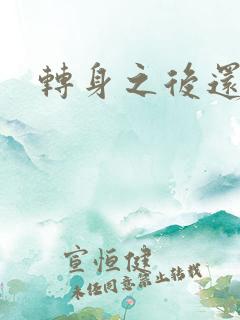 轉身之後還
宣恒健
未经同意禁止转载